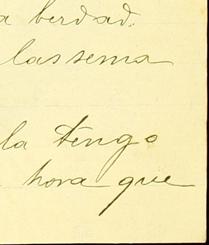 a berdad.
lassema
la tengo
hora que